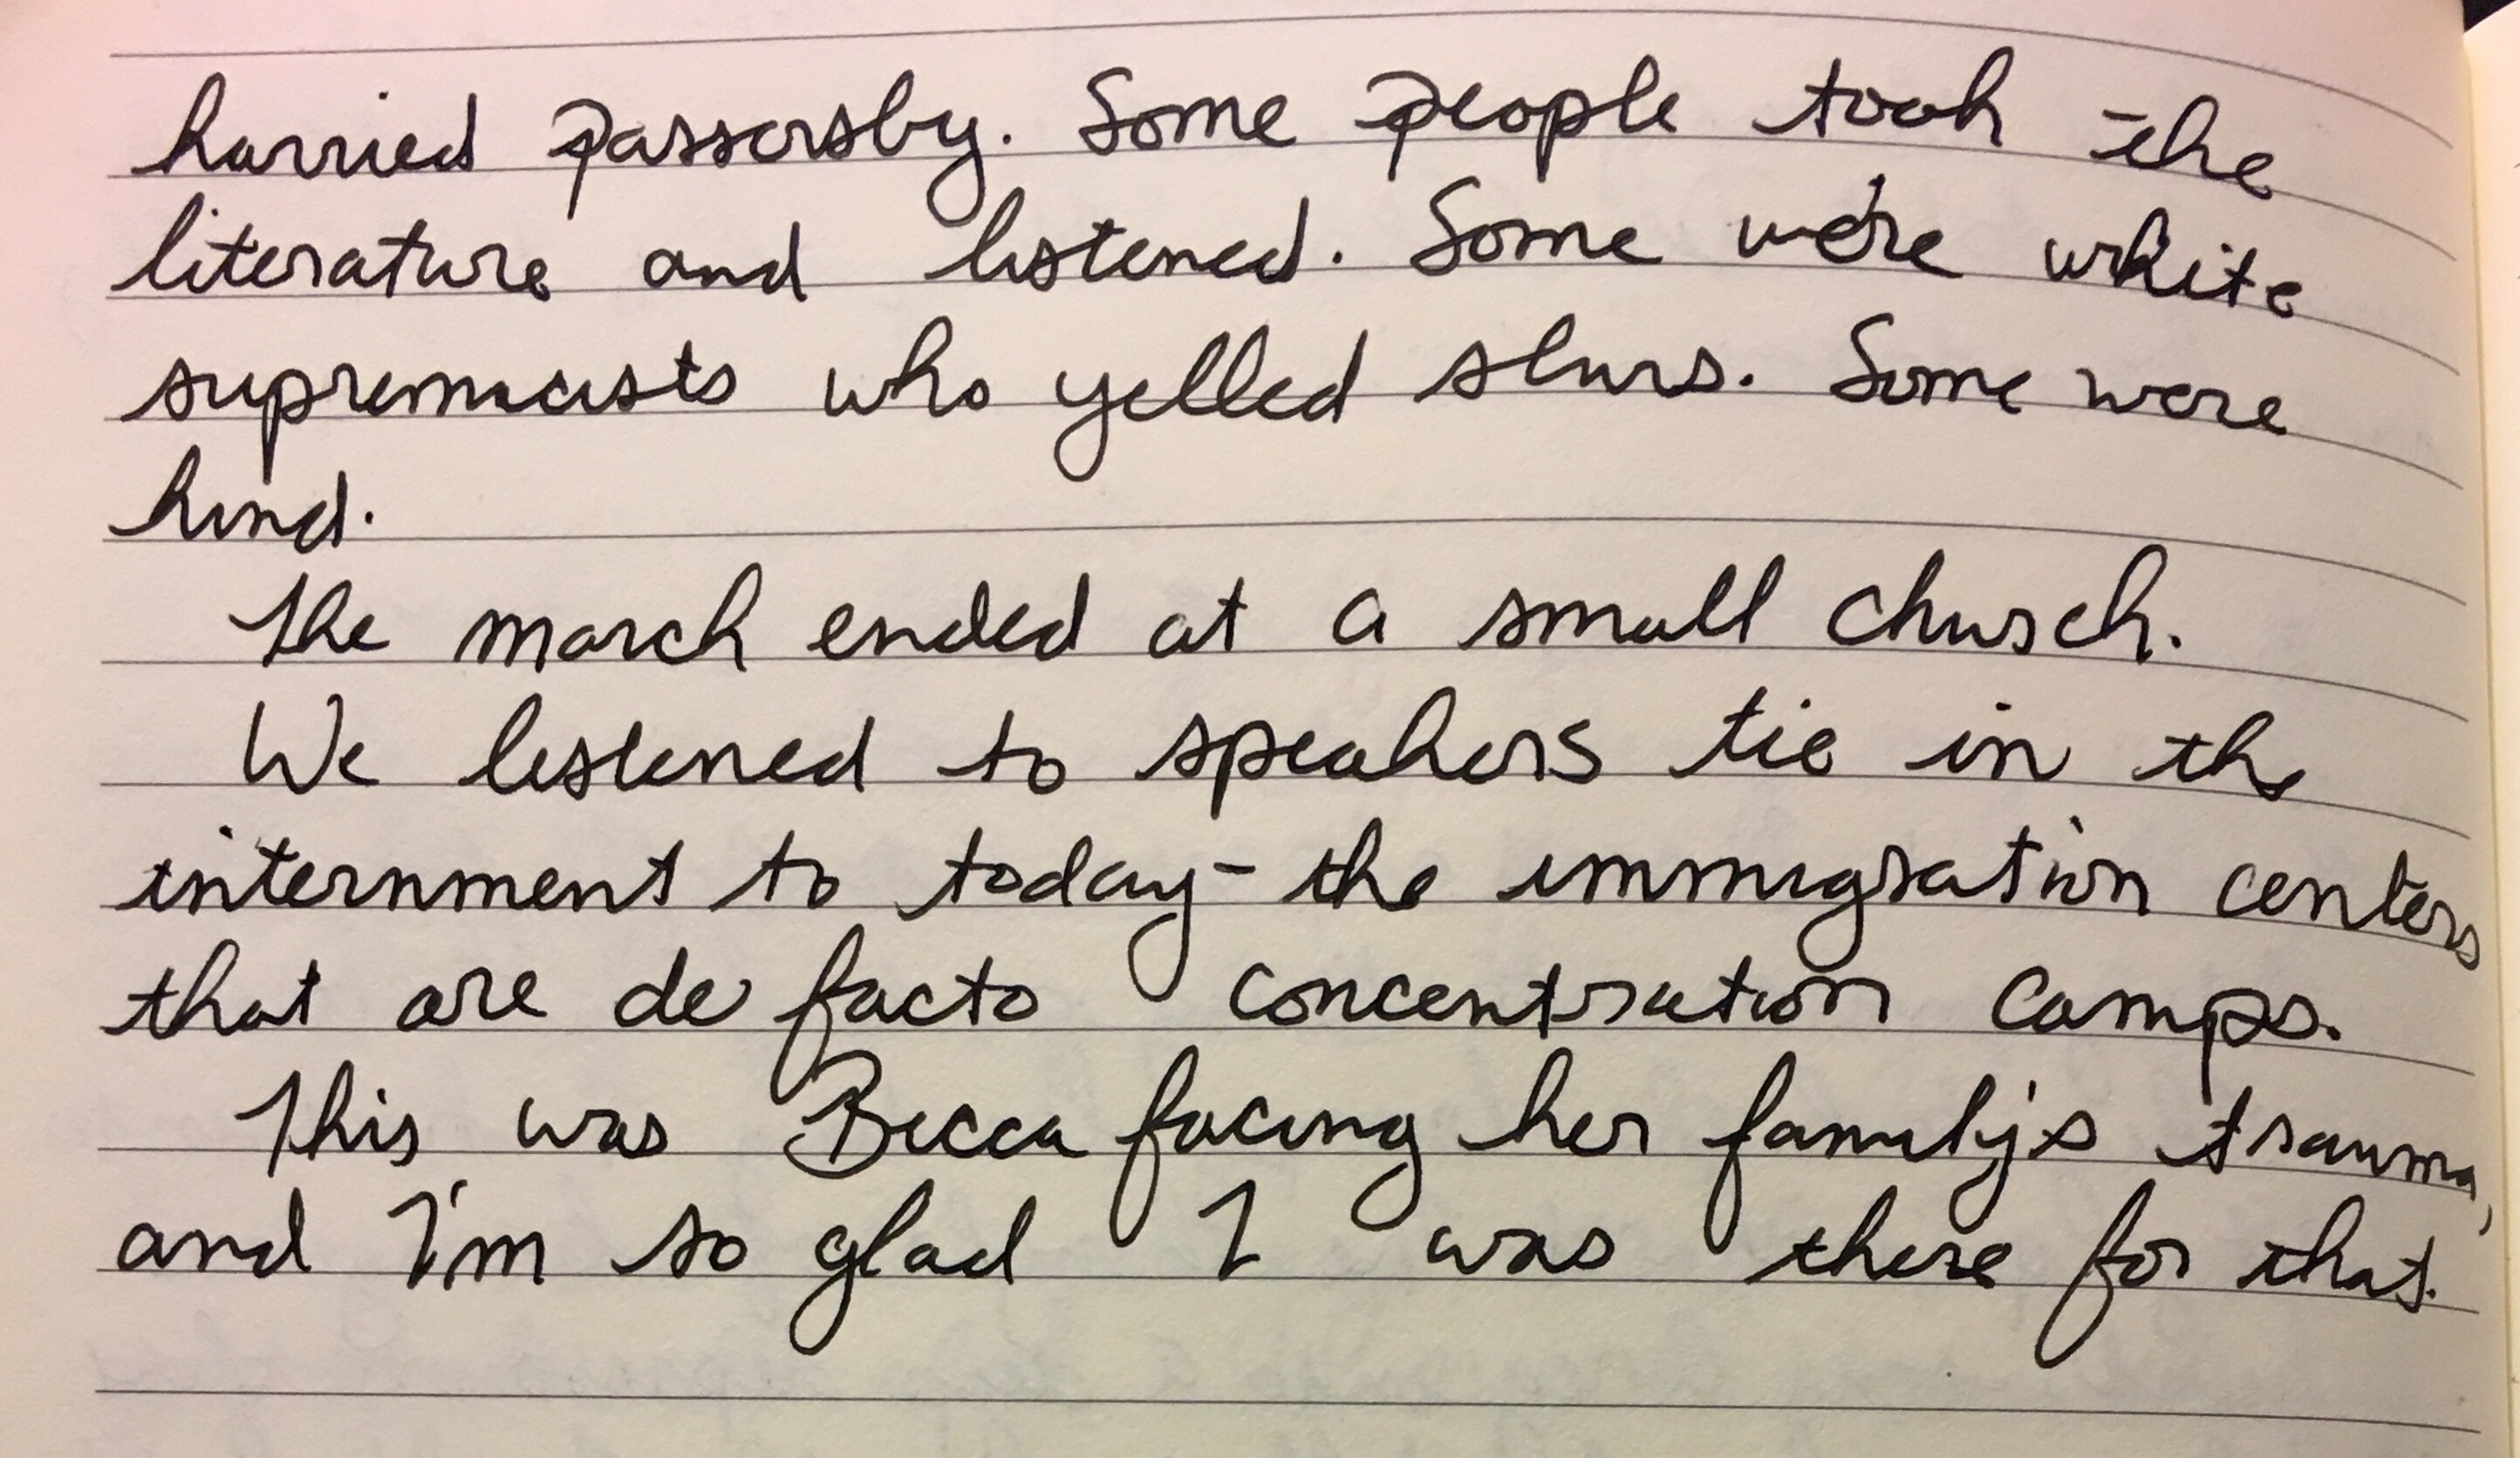 harried passersby. Some people took the
literature and listened. Some were white
supremacists who yelled slurs. Some were
kind.
The march ended at a small church.
We listened to speakers tie in the
internment to today - the immigration centers
that are de facto concentration camps.
This was Becca facing her family's trauma,
and I'm so glad I was there for that.